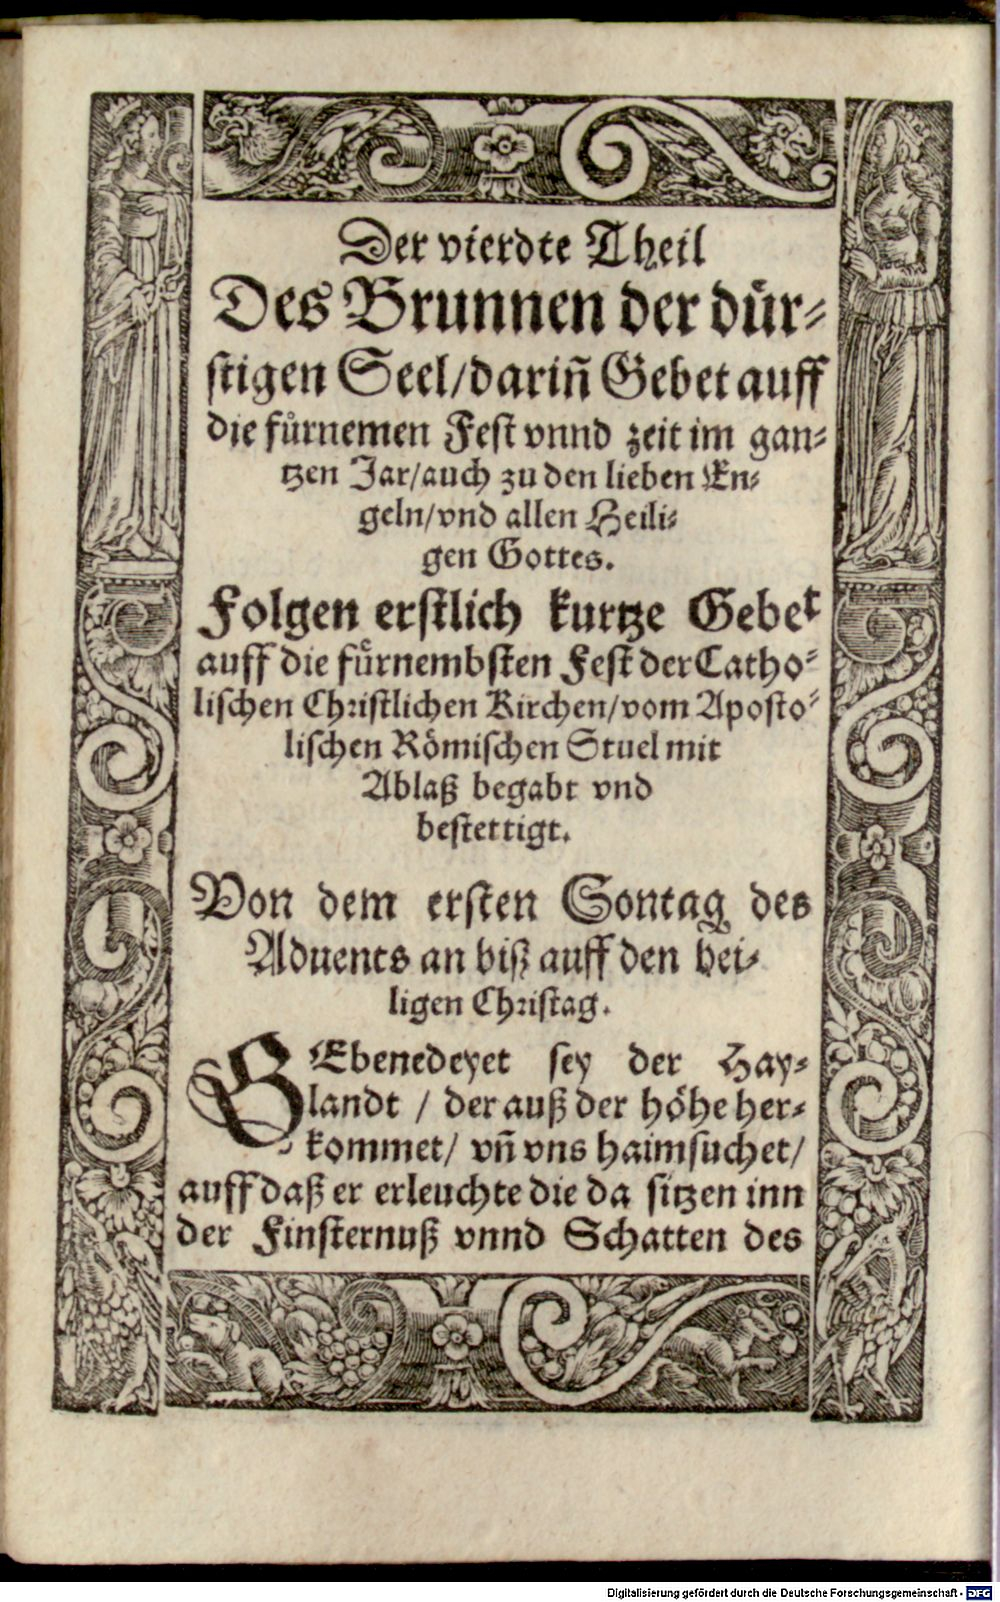 Der vierdte Theil
Des Brunnen der dür-
stigen Seel/darin̄ Gebet auff
die fuͤrnemen Fest vnnd zeit im gan-
tzen Jar/auch zu den lieben En-
geln/vnd allen Heili-
gen Gottes.
Folgen erstlich kurtze Gebet
auff die fuͤrnembsten Fest der Catho-
lischen Christlichen Kirchen/vom Aposto-
lischen Römischen Stuel mit
Ablaß begabt vnd
bestettigt.
Von dem ersten Sontag des
Aduents an biß auff den hei-
ligen Christag.
GEbenedeyet sey der Hay-
landt / der auß der höhe her-
kommet/ vn̄ vns haimsuchet/
auff daß er erleuchte die da sitzen inn
der Finsternuß vnnd Schatten des
Digitalisierung gefördert durch die Deutsche Forschungsgemeinschaft - DFG